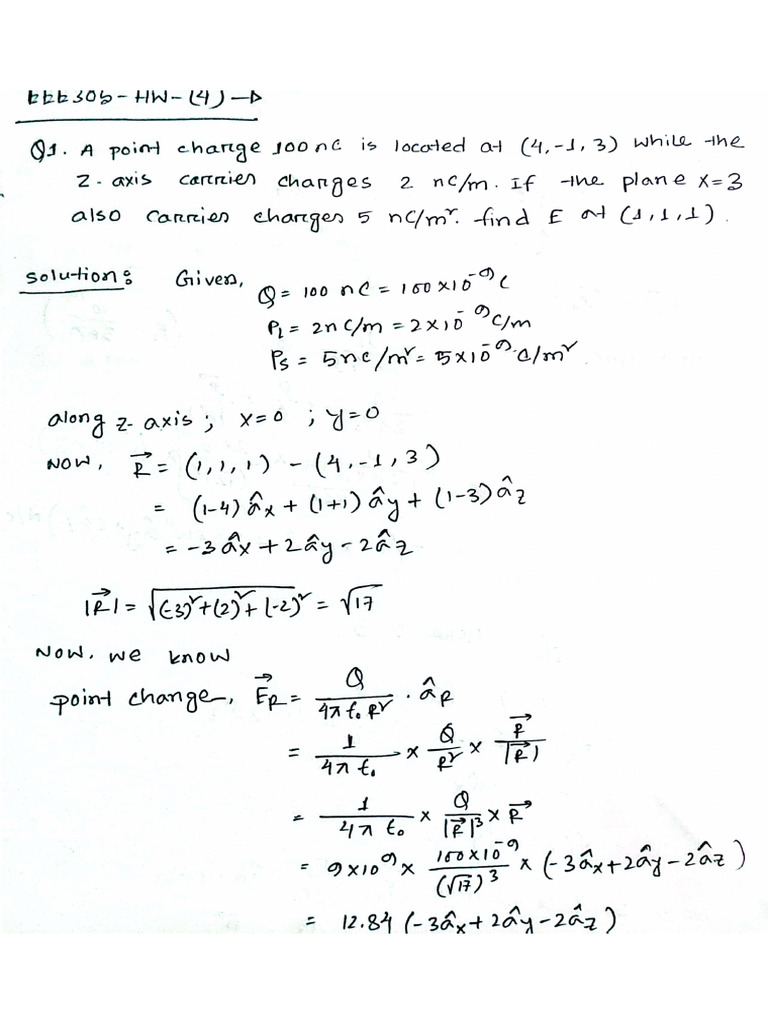 EEE305-HW-(4)→
Q1. A point change 100 nC is located at (4,-1,3) while the
Z-axis carries charges 2 nC/m. If the plane x=3
also carries charges 5 nC/m². find E at (1,1,1).
Solution: Given, Q = 100 nC = 100×10⁻⁹ C
ρL = 2nC/m = 2×10⁻⁹ C/m
ρs = 5nc/m² = 5×10⁻⁹ C/m²
along z-axis; x=0; y=0
Now, R⃗ = (1,1,1) - (4,-1,3)
= (1-4) âx + (1+1) ây + (1-3) âz
= -3âx + 2ây - 2âz
|R⃗| = √(-3)²+(2)²+(-2)² = √17
Now, we know
point change, E⃗R = Q/4πε₀R² · âR
= 1/4πε₀ × Q/R² × R⃗/|R⃗|
= 1/4πε₀ × Q/|R⃗|³ × R⃗
= 9×10⁹ × 100×10⁻⁹/(√17)³ × (-3âx+2ây-2âz)
= 12.84 (-3âx+2ây-2âz)